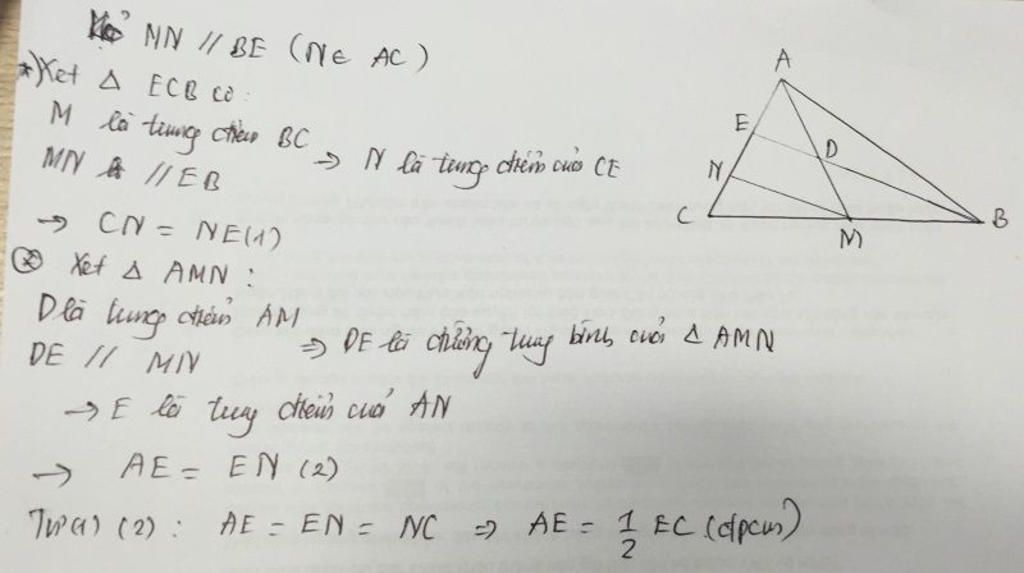 Kẻ MN // BE (N ∈ AC)
*) Xét Δ ECB có:
M là trung điểm BC
MN // EB
⇒ N là trung điểm của CE
→ CN = NE (1)
* Xét Δ AMN :
D là trung điểm AM
DE // MN
⇒ DE là đường trung bình của Δ AMN
→ E là trung điểm của AN
→ AE = EN (2)
Từ (1) (2) : AE = EN = NC ⇒ AE = 1/2 EC (đpcm)
A
E
D
N
C
M
B